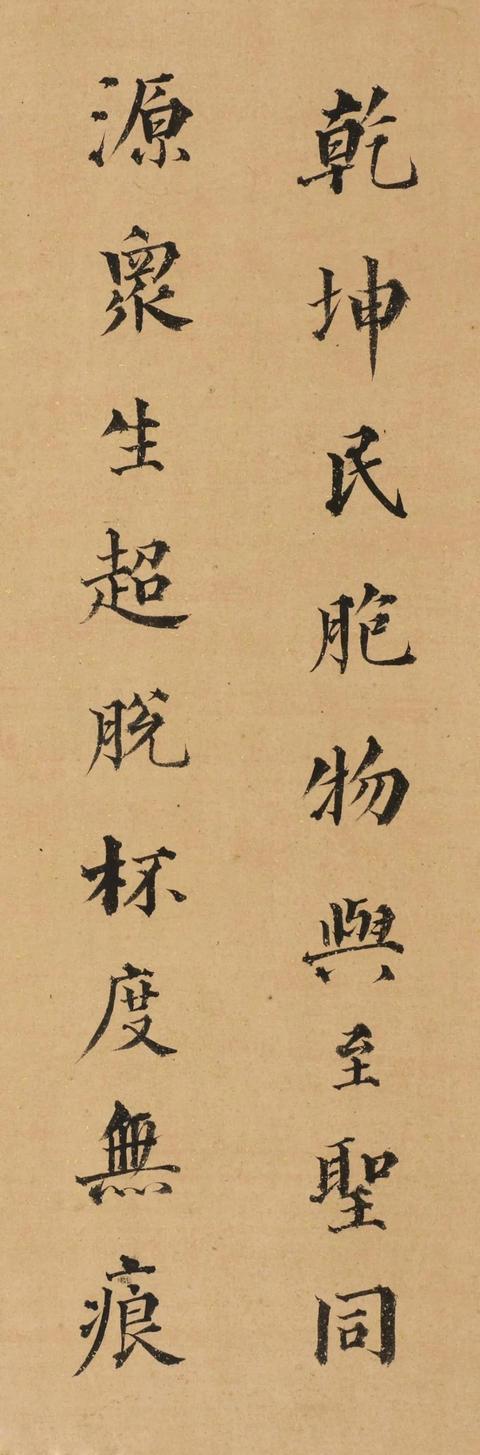 乾坤民胞物與至聖同
源眾生超脫杯度無痕